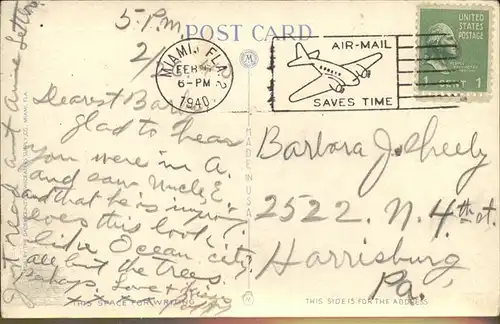 5 P.M.
2/
POST CARD
MIAMI, FLA. 2
FEB
6-PM
1940
AIR-MAIL
SAVES TIME
UNITED
STATES
POSTAGE
1 CENT 1
Dearest Barb
glad to hear
you were in A.
and saw Uncle E.
and that he is improv.
does this look
like Ocean City
all but the trees.
Perhaps. Love + kisses
x x x x x
Just read Aunt Annes letter
MADE IN U.S.A.
Barbara J. Sheely
2522. N. 4th st.
Harrisburg
Pa.
THIS SPACE FOR WRITING
THIS SIDE IS FOR THE ADDRESS